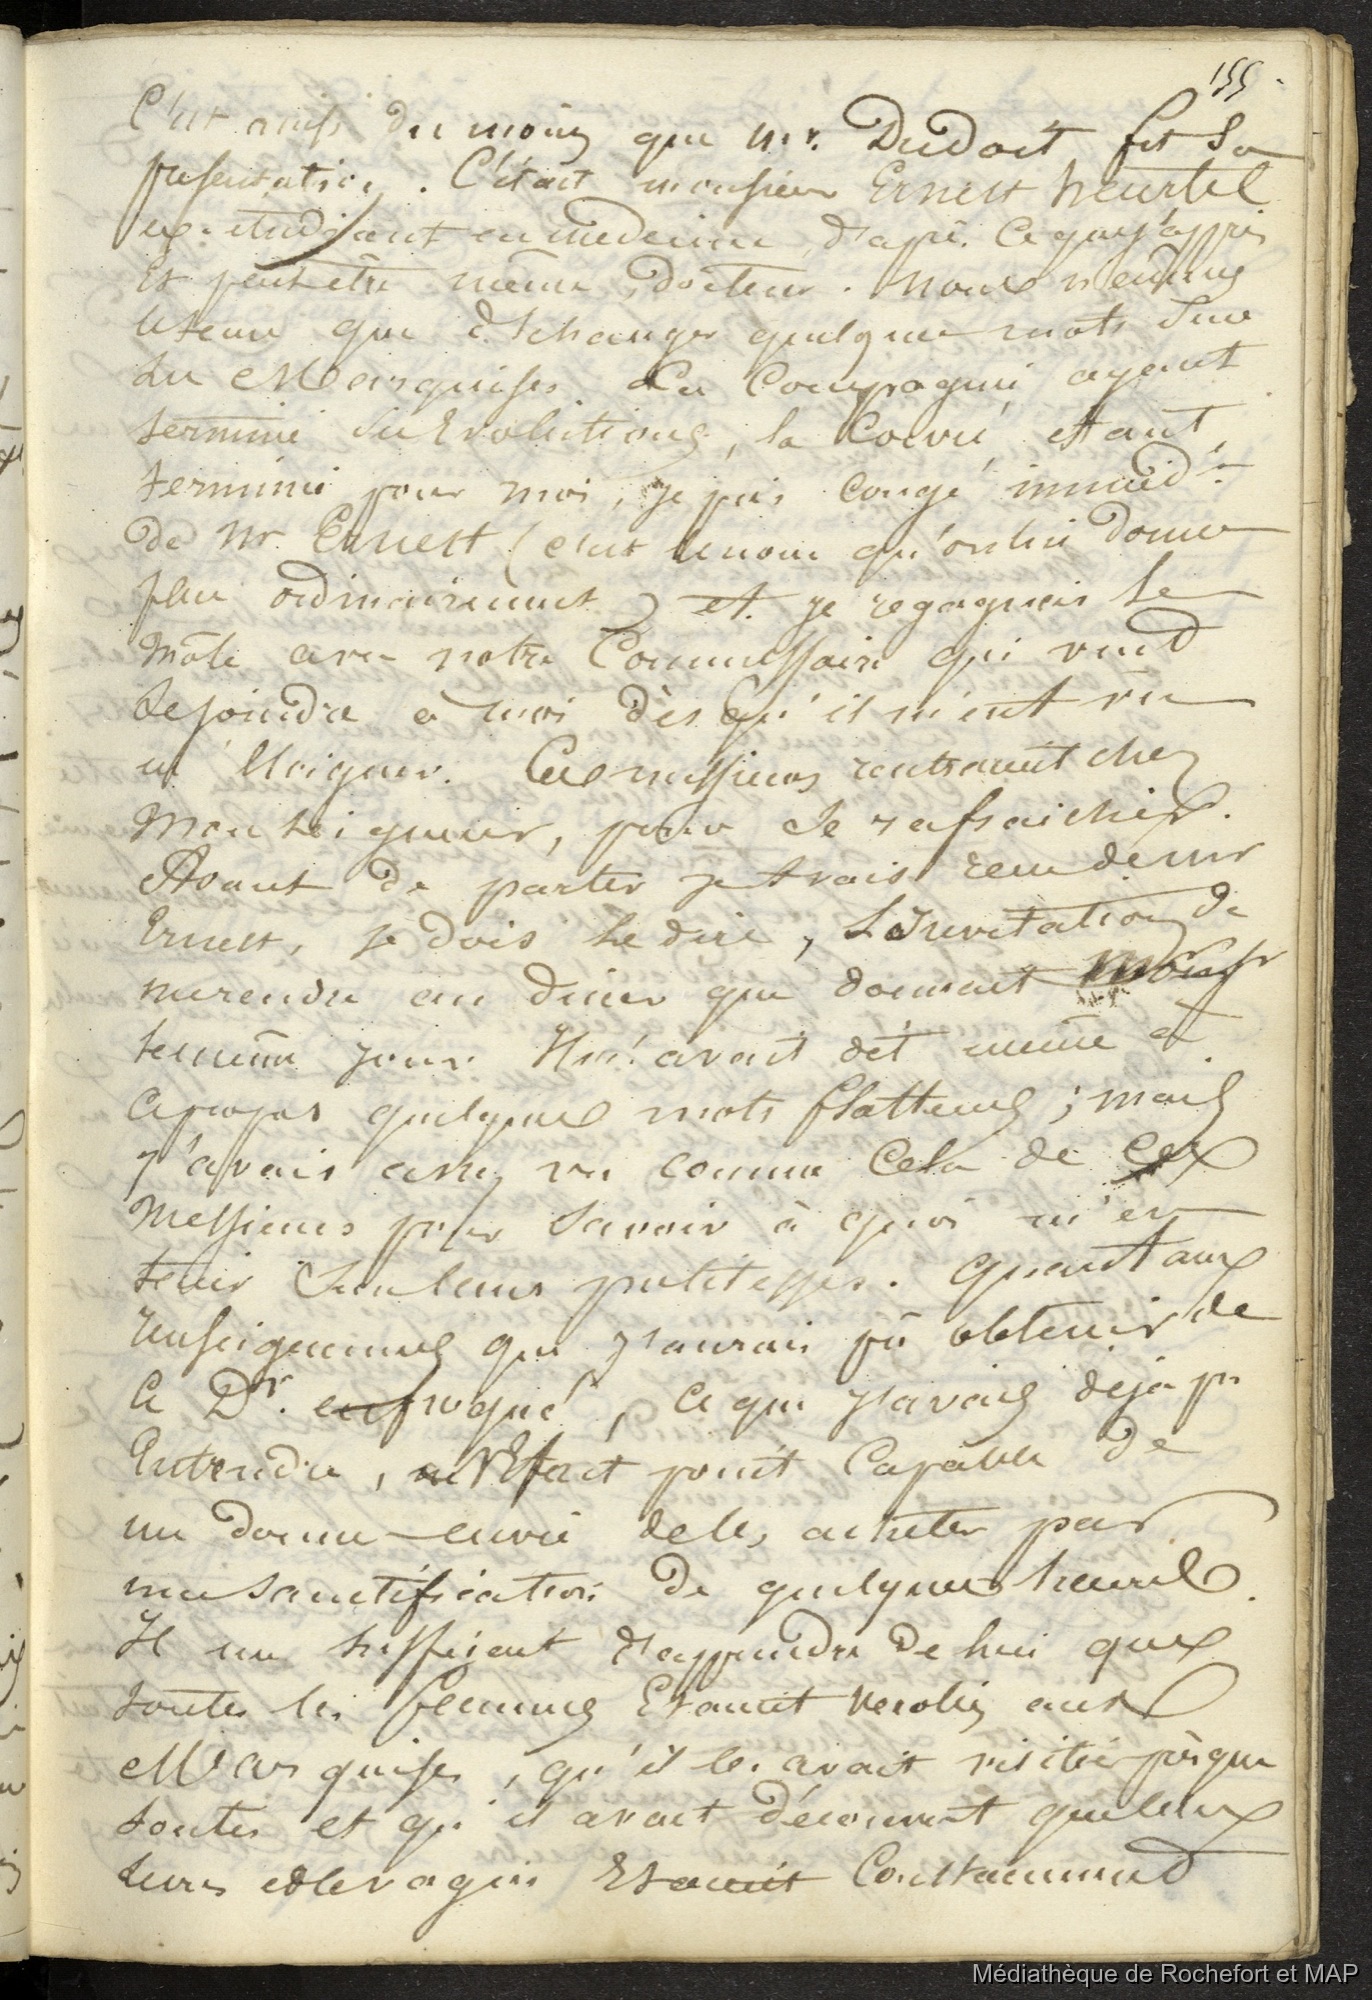 155
C'est ainsi du moins que mr. Dudoit fit sa
présentation. C'était monsieur Ernest heurtel
ex-étudiant en medecine, d'apr. ce que j'appris
Et peut être même, docteur. Nous n'eumes
le tems que d'échanger quelques mots sur
les Marquises. La Compagnie ayant
terminé ses Evolutions, la Corvée, etant,
terminée pour moi, je pris congé immédt.
de Mr Ernest (c'est le nom qu'on lui donne
plus ordinairement) et je regagnais le
Môle avec notre Commissaire qui vint
se joindre à moi dès qu'il m'eut vu
m'éloigner. Ces messieurs rentrerent chez
Monseigneur, pour se rafraichir.
Avant de partir j'avais recu de mr
Ernest, je dois le dire, L'invitation de
me rendre au diner que donnait
le même jour. Il m'avait dit même à
ce propos quelques mots flatteurs; mais
j'avais assez vu comme cela de ces
Messieurs pour savoir à quoi m'en
tenir sur leurs politesses. Quant aux
renseignemens que j'aurais pû obtenir de
ce Dr. enfroqué, ce que j'avais déjà pu
Entendre, n'était point capable de
me donner envie de les acheter par
ma sanctification de quelques heures.
Il me suffisait d'apprendre de lui que
toutes les femmes Etaient verolées aux
Marquises, qu'il les avait visitées presque
toutes et qu'il avait découvert que leurs
leurs vagins Etaient Constamment
Médiathèque de Rochefort et MAP